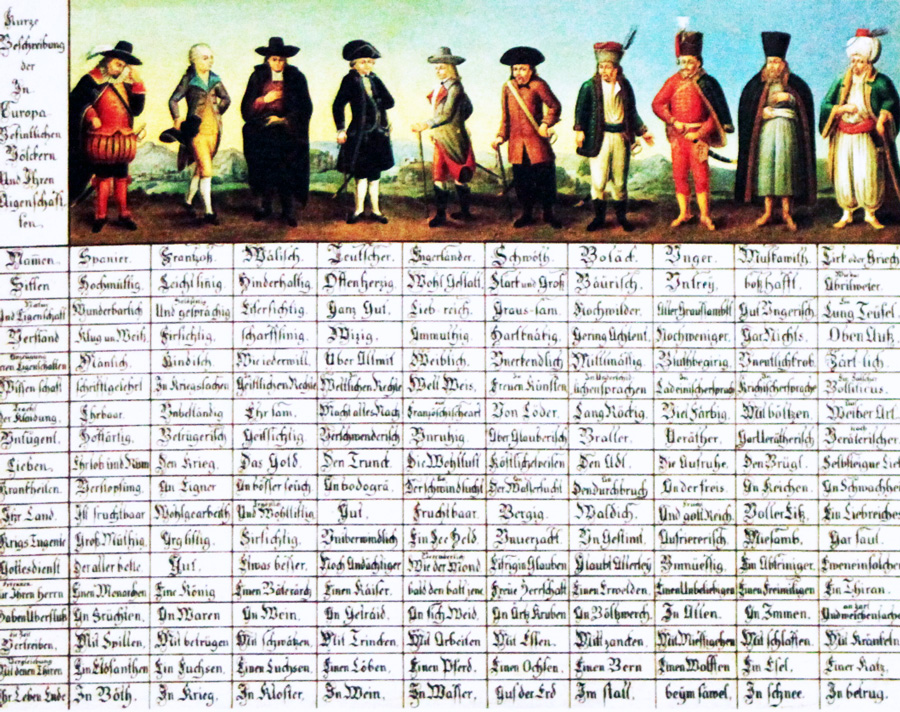 Kurze
Beschreibung
der
In
Europa
Befintlichen
Völckern
Und Ihren
Aigenschaff
ten.
Namen. Spanier. Frantzoß. Wälisch. Teutscher. Engerländer. Schwöth. Boläck. Unger. Muskawith. Tirk oder Griech
Sitten Hochmüttig. Leichtsinig. Hinderhaltig. Offenherzig. Wohl Gestalt. Starck und Groß Bäurisch. Untrey. boßhafft. Abrilweter.
Und Eigenschaft Wunderbarlich Und gesprächig Eifersichtig. Ganz Gut. Lieb-reich. Graus-sam. Nochwilder. Aller Graussambst. Gut Ungerisch. Lung Teüfel.
Verstand Klug un Weiß. Firsichtig. scharffsinig. Wizig. Ammuthig Hartknätig. Gering Achtent. Nochweniger. Gar Nichts. Oben Auß.
Mänlich. Kindisch. Wie iederwill. Über Allmit Weiblich. Unerkendlich Mittlmäsig. Bluthbegirig. Unentlichkrob. Zärt-lich.
Wissenschaft schriftgelehrt In Kriegssachen Geistlichen Rechte Weltlichen Rechte Welt Weis. Freuen Künsten Ladeinischersprach Krichischersprache Bolliticus.
Der Klaidung. Ehrbaar. Unbeständig Ehr sam. Macht alles Nach Französischeart Von Löder. Lang Röckig. Viel Färbig. Mit böltzen. Weiber Art.
Untugent. Hoffärtig. Betrügerisch Geillsichtig. Verschwenderisch Unruhig. Über Glauberisch Braller. Veräther. Gar Verätherisch Veräterischer.
Lieben. Ehrlob und Rum Den Krieg. Das Gold. Den Trunck. Die Wohllust Köstliche speisen Den Adl. Die Aufruhe. Den Brügl. Selbsteigne Lieb
Krankheiten. Verstopfung. An Eigner An bösser seüch. An bodogrä. Der schwindsucht Der Wassersucht Den durchbruch An der freis. An Keichen. An Schwachheit
Ihr Land. Ist fruchtbaar Wohlgearbeith Und Wohllistig Gut. Fruchtbaar. Bergig. Waldich. Und golt Reich. Voller Eiß. Ein Liebreiches
Krigs Tugente Groß Müthig. Arg listig. Firsichtig. Unüberwindlich Ein See Held. Unverzact. Un Gestimt. Aufrierisch. Miesamb. Gar faul.
Gottesdienst Der aller beste. Gut. Etwas besser. Noch Andächtiger Wie der Mond Eifrig in Glauben Glaubt Allerley Unmüessig. Ein Abtriniger. Eweneinsolchen
Für Ihren Herrn Einen Monarchen Eine König Einen Bäterärch Einen Käiser. bald den bald jene. Freüe Herrschaft Einen Erwelden. Einen Unbeliebigen Einen Freimiligen Ein Thiran.
Haben Überfluß An Früchten. An Waren An Wein. An Getraid. An fich Weid. An Ärtz Kruben An Böltzwerch. In Allen. In Immen. Und weichen sachen
Vertreiben. Mit Spillen. Mit betrügen Mit schwätzen Mit Trincken. Mit Arbeiten Mit Essen. Mitt zancken Mit Miessigehen Mit schlaffen Mit Kränkeln
Ein Elösanthen Ein Fuchsen. Einen Luchsen. Einen Löben. Einen Pferd. Einen Ochsen. Einen Bern Einen Wolffen Ein Esel. Einer Katz.
Ihr Leben Ende In Böth. In Krieg. In Kloster. In Wein. In Wasser. Auf der Erd Im stall. beym säwel. In schnee. In betrug.